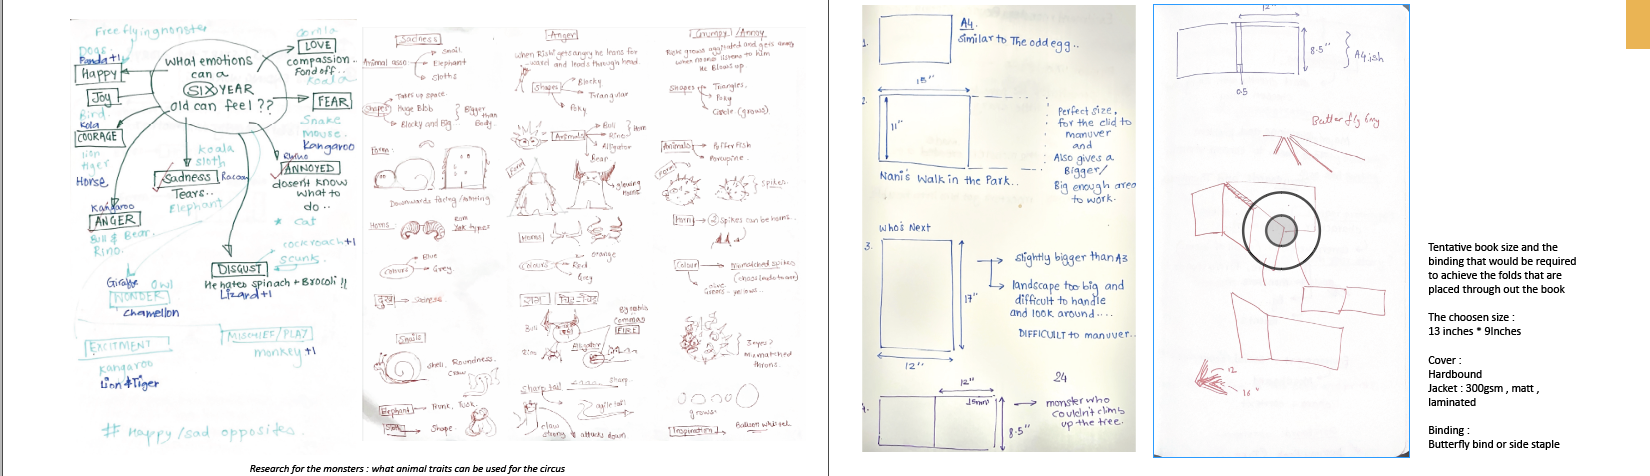 Free flying monster
Dogs
Panda +1
Happy
Joy
Bird.
Kola
COURAGE
lion
tiger
Horse
WHat emotions
can a
SIX YEAR
old can feel ??
Gorilla
LOVE
compassion..
Fond off..
Koala
FEAR
Snake
mouse.
Kangaroo
Koala
sloth
Sadness
Racoon
Tears..
Elephant
Rhino
ANNOYED
dosent know
what to
do ..
* Cat
Kangaroo
ANGER
Bull & Bear.
Rino.
cockroach +1
scunk.
DISGUST
He hates spinach + Brocoli !!
Lizard +1
Giraffe
Owl
WONDER
Chamellon
EXCITMENT
Kangaroo
Lion & Tiger
MISCHIEF/PLAY
monkey +1
# Happy/sad opposites.
Sadness
Animal asso
Snail
Elephant
Sloths
Shapes
Takes up space.
Huge Blob
Blocky and Big
Bigger
than
Body.
Form
Downwards facing
Horns
Ram
Yak types
Colours
Blue
Grey
दुख
Snails
Shell, Roundness.
Elephant
Trunk, Tusk.
Sloth
Shape
Anger
When Rishi gets angry he leans for
-ward and leads through head.
Shapes
Blocky
Triangular
Poky
Animals
Bull
Rino
Horn
Alligator
Bear
Form
glowing
horns
Horns
Colours
Orange
Red
Grey
Bull
Rino
Alligator
FIRE
Sharp tail
Sharp
agile tail
claw
strong
attacks down
Grumpy/Annoy
Rishi grows aggitated and gets annoy
when no one listens to him
He Blows up.
Shapes
Triangles.
Poky
Circle (grows)
Animals
Puffer fish
Porcupine.
Form
Spikes.
Horn
Spikes can be horns..
Colour
Mismatched spikes
Greens - yellows..
Mismatched
grows
Inspiration
Research for the monsters : what animal traits can be used for the circus
1.
A4.
similar to The odd egg..
2.
15"
11"
Nani's Walk in the Park..
Perfect size,
for the clid to
manuver
and
Also gives a
Bigger/
Big enough area
to work.
Who's Next
3.
17"
12"
slightly bigger than A3
landscape too big and
difficult to handle
and look around....
DIFFICUILT to manuver..
4.
12"
15mm
8.5"
24
monster who
couldn't climb
up the tree.
12"
8.5"
A4 ish
0.5
Butterfly
12
16
Tentative book size and the
binding that would be required
to achieve the folds that are
placed through out the book
The choosen size :
13 inches * 9Inches
Cover :
Hardbound
Jacket : 300gsm , matt ,
laminated
Binding :
Butterfly bind or side staple